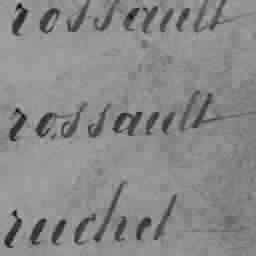 rossault
rossault
ruchet